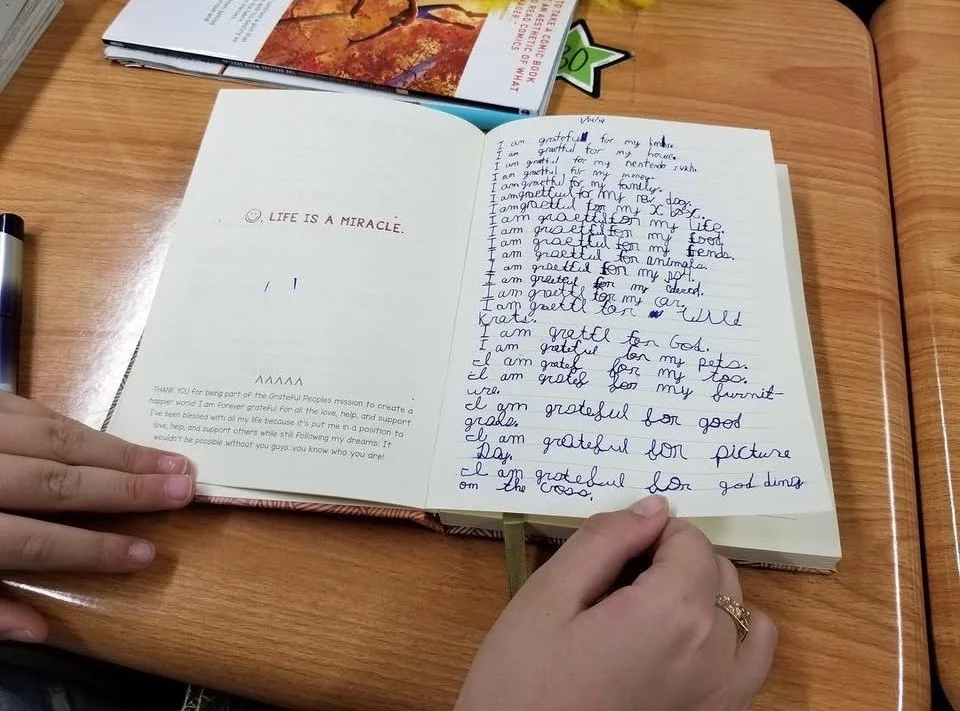 TO TAKE A COMIC BOOK
AN AESTHETIC OF WHAT
READ COMICS
30
☺, LIFE IS A MIRACLE.
THANK YOU for being part of the Grateful Peoples mission to create a
happier world! I am forever grateful for all the love, help, and support
I've been blessed with all my life because it's put me in a position to
love, help, and support others while still following my dreams. It
wouldn't be possible without you guys...you know who you are!
I am grateful for my
I am graetful for my house.
I am gratful for my nentendo
I am graetful for my money.
I am graetful for my family.
I am graetful for my new dog.
I am graetful for my X box.
I am graetful for my life.
I am graetful for my food.
I am graetful for my friends.
I am graetful for animals.
I am graetful for my
I am grateful for my
I am graetfl for my car.
I am graetfl for Wild
Krats.
I am gratfl for God.
I am grateful for my pets.
I am gratef for my
I am gratef for my furnit-
ure.
I am grateful for good
grads.
I am grateful for picture
Day.
I am grateful for god ding
on the cross.